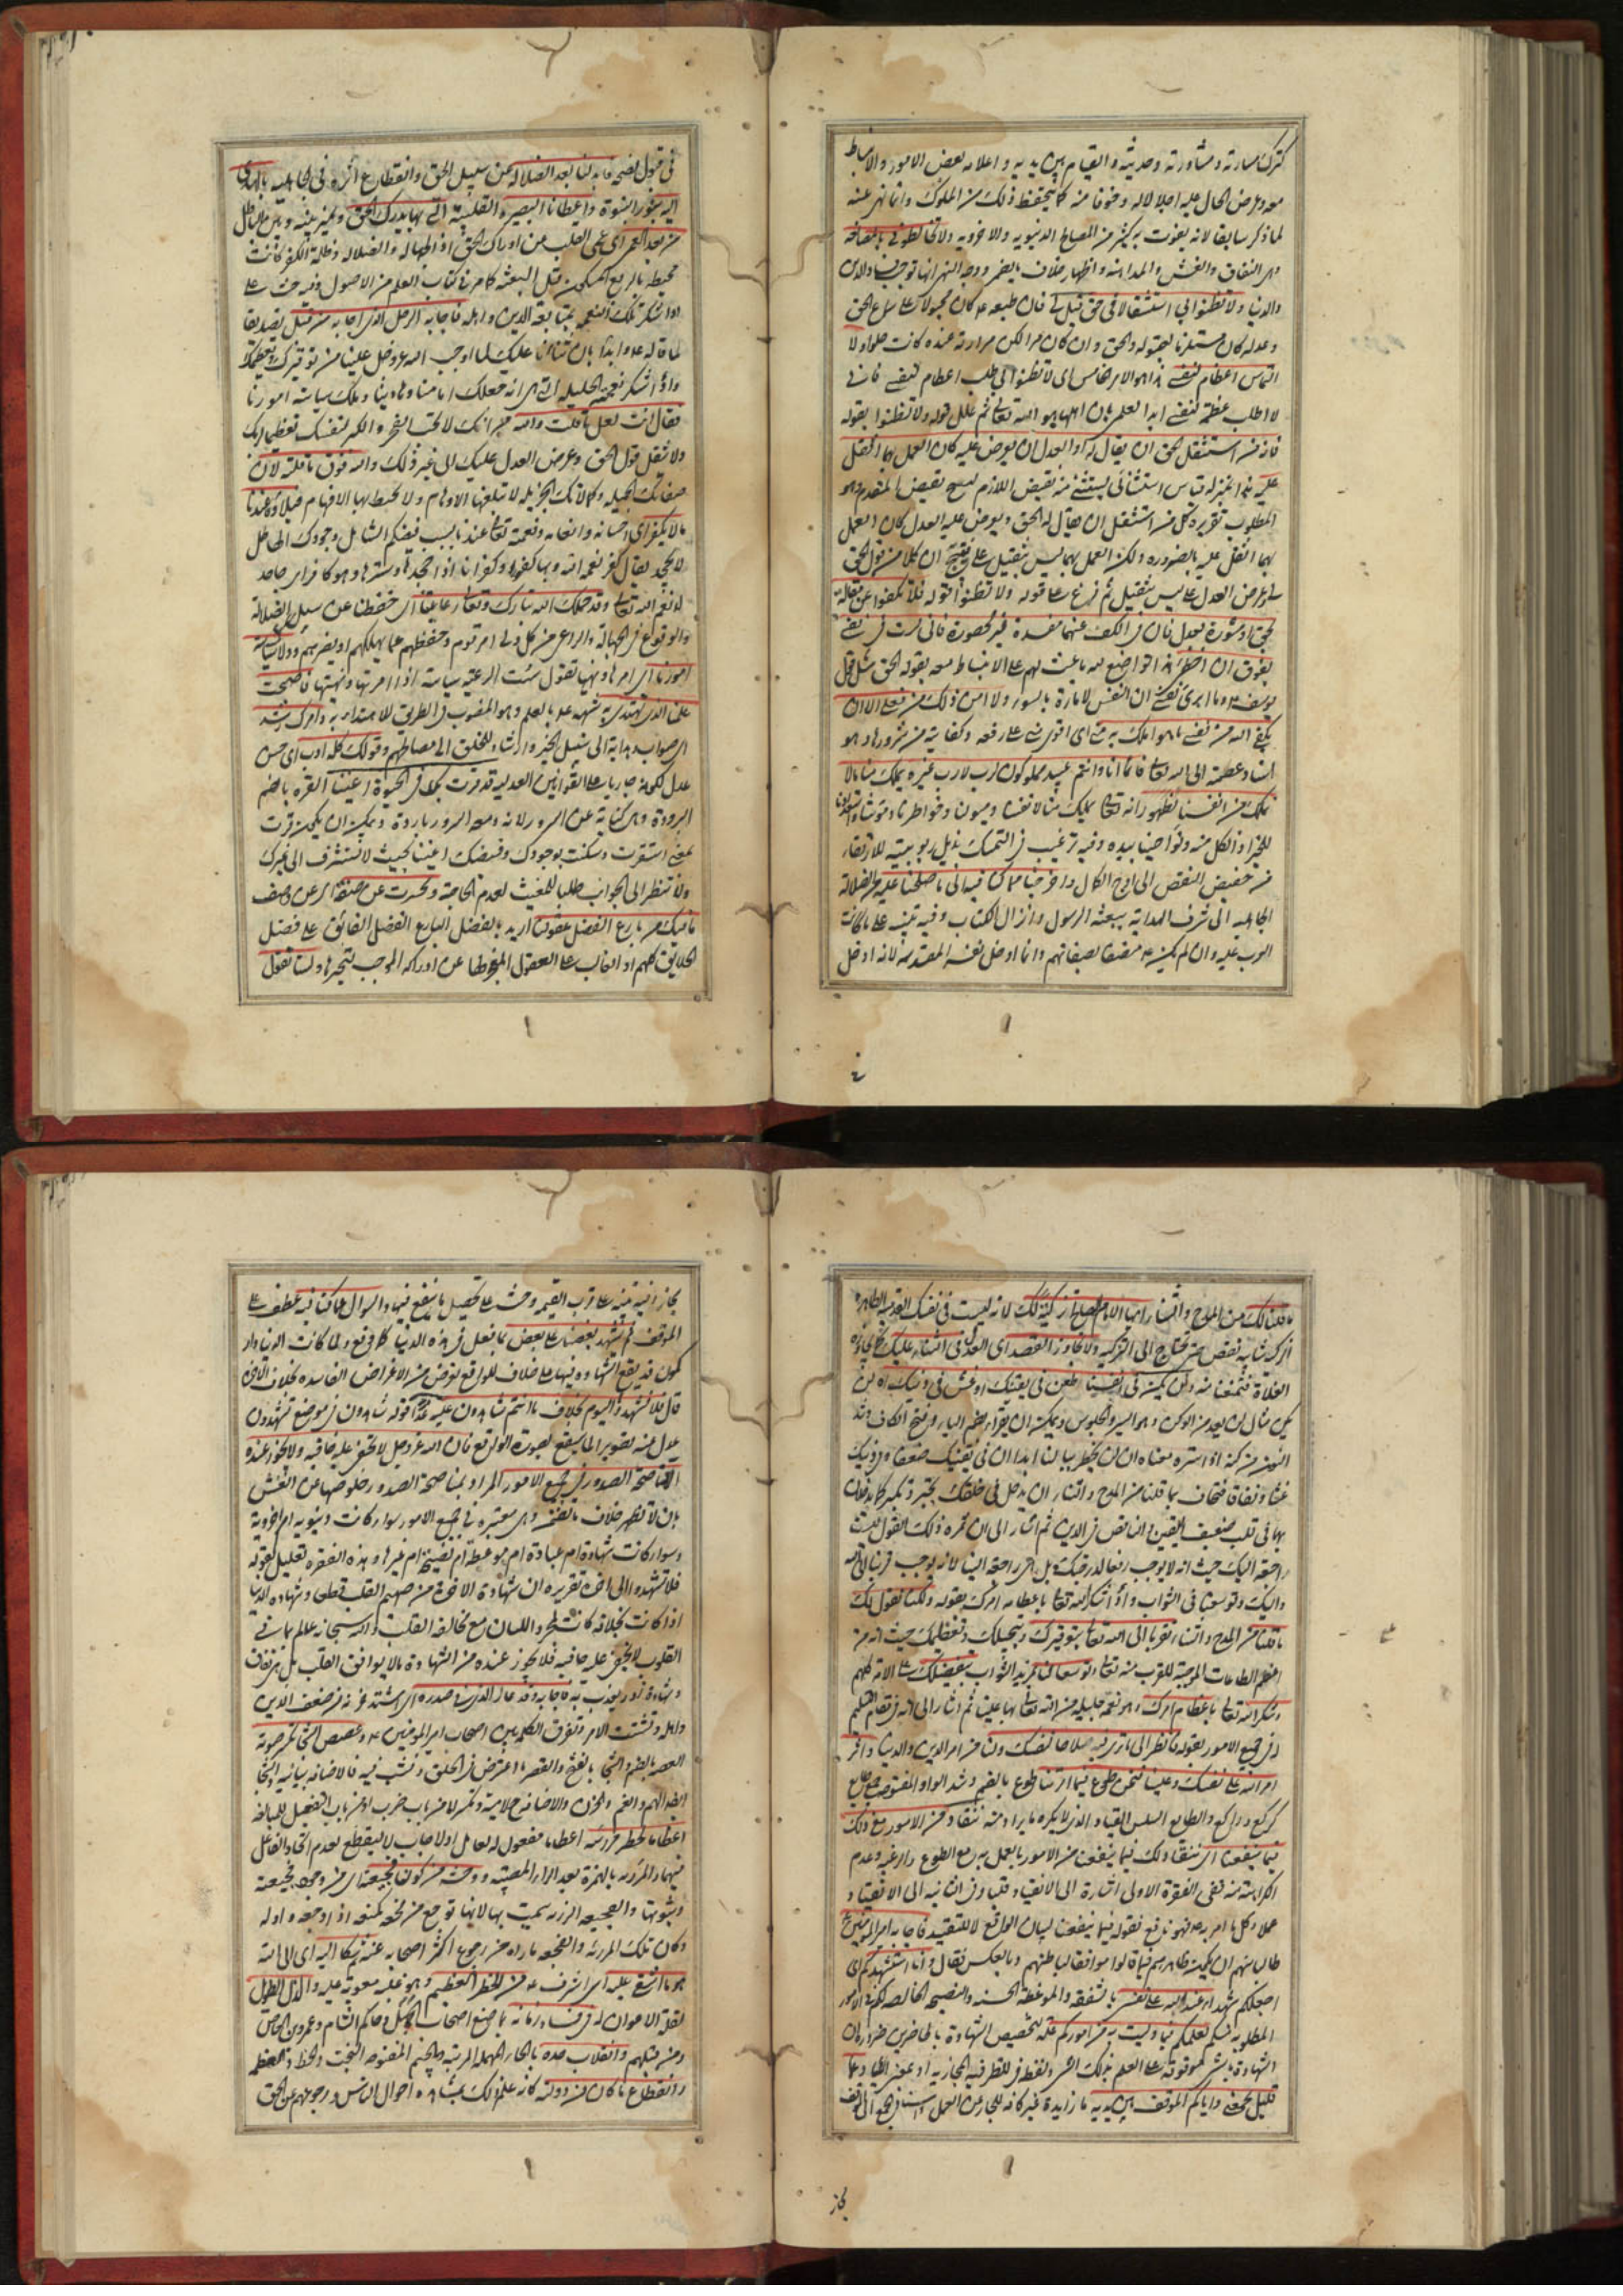 كترك مسارته ومشاورته وحديثه والقيام بين يديه واعلامه بعض الامور والانبساط
معه وعرض الحال عليه اجلالا له وخوفا منه كما يتحفظ ذلك من الملوك وانما نهى عنه
لما ذكر سابقا لانه يفوت به كثير من المصالح الدنيوية والاخروية ولا تخالطوني بالمصانعة
وهى النفاق والغش والمداهنة واظهار خلاف ما يضمر ووجه النهى انها توجب فساد الدين
والدنيا ولا تظنوا بى استثقالا فى حق قيل لى فان طبعه ع كان مجبولا على سماع الحق
وعدله كان مستلزما لقبوله والحق وان كان مرا لكن مرارته عنده كانت حلوا ولا
التماس اعظام لنفسى هذا هو الامر الخامس اى لا تظنوا بى طلب اعظام لنفسى فانى
لا اطلب عظمة لنفسى ابدا لعلمى بان اهلها هو الله تعالى ثم علل قوله ولا تظنوا بقوله
فانه من استثقل الحق ان يقال له او العدل ان يعرض عليه كان العمل بهما اثقل
عليه هذا بمنزلة قياس استثنائى يستثنى منه نقيض اللازم لينتج نقيض المقدم وهو
المطلوب تقريره كل من استثقل ان يقال له الحق ويعرض عليه العدل كان العمل
بهما اثقل عليه بالضرورة ولكن العمل بهما ليس بثقيل على فينتج ان كلا من قول الحق
لى وعرض العدل على ليس بثقيل ثم فرع على قوله ولا تظنوا قوله فلا تكفوا عن مقالة
بحق او مشورة بعدل فان فى الكف عنهما مفسدة غير محصورة فانى لست فى نفسى
بفوق ان اخطئ هذا تواضع لله باعث لهم على الانبساط معه بقول الحق مثل قول
يوسف ع وما ابرئ نفسى ان النفس لامارة بالسوء ولا امن ذلك من فعلى الا ان
يكفى الله من نفسى ما هو املك به منى اى اقوى منى على رفعه وكفايته من شرورها وهو
اسناد عظمة الى الله تعالى فانما انا وانتم عبيد مملوكون لرب لا رب غيره يملك منا ما لا
نملك من انفسنا لظهور انه تعالى يملك منا لا نفسنا وميولنا وخواطرنا وقوتنا واستعدادنا
للخير اذ الكل منه ونواصينا بيده وفيه ترغيب فى التمسك بذيل ربوبيته للارتقاء
من حضيض النقص الى اوج الكمال واخرجنا مما كنا فيه الى ما صلحنا عليه من الضلالة
الجاهلية الى شرف الهداية ببعثة الرسول وانزال الكتاب وفيه تنبيه على ما كانت
العرب عليه وان لم يكن ع متصفا بصفاتهم وانما ادخل نفسه المقدسة لانه ادخل
فى قبول نصحه فابدلنا بعد الضلالة عن سبيل الحق وانقطاع اثره فى الجاهلية بالهدى
اليه بنور النبوة واعطانا البصيرة القلبية التى بها يدرك الحق ويميز بينه وبين الباطل
من بعد العمى اى عمى القلب عن ادراك الحق اذ الجهالة والضلالة وظلمة الكفر كانت
محيطة بالربع المسكون قبل البعثة كما مر فى كتاب العلم من الاصول وفيه حث على
اداء شكر تلك النعمة بمتابعة الدين واهله فاجابه الرجل الذى اجابه من قبل تصديقا
لما قاله ع وابداء بان ثناءنا عليك لما اوجب الله عز وجل علينا من توقيرك وتعظيمك
واداء شكر نعمته الجليلة التى هى انه جعلك اماما وهاديا وملك سياسة امورنا
فقال انت اهل ما قلت والله خبر انك لا تحب الفخر والكبر لنفسك تعظيما لربك
ولا تثقل قول الحق وعرض العدل عليك الى غير ذلك والله فوق ما قلته لان
صفاتك الجميلة وكمالاتك الجزيلة لا تبلغها الاوهام ولا تحيط بها الافهام فبلاؤه عندنا
ما لا يكفر اى احسانه وانعامه ونعمة تعالى عندنا بسبب فيضكم الشامل وجودك الحاصل
لا يجحد يقال كفر نعمة الله وبها كفورا وكفرانا اذا جحدها وسترها وهو كافر اى جاحد
لانعم الله تعالى وقد حملك الله تبارك وتعالى رعايتنا اى حفظنا عن سبيل الضلالة
والوقوع فى الجهالة والراعى من كل ولى امر قوم وحفظهم عما يهلكهم او يضرهم وولاك سياسة
امورنا اى امرها ونهيها تقول سست الرعية سياسة اذا امرتها ونهيتها فاصبحت
علمنا الذى نهتدى به شبهه ع بالعلم وهو المنصوب فى الطريق للاهتداء به وامرك رشد
اى صواب هداية الى سبيل الخير وارشاد للخلق الى مصالحهم وقولك كله ادب اى حسن
عدل لكونه جاريا على القوانين العدلية قد قرت بك فى الحيوة اعيننا القرة بالضم
البرودة وهى كناية عن السرور لان دمعة السرور باردة ويمكن ان يكون قرت
بمعنى استقرت وسكنت بوجودك وفيضك اعيننا بحيث لا تستشرف الى غيرك
ولا تنظر الى الجوانب طلبا للمغيث لعدم الحاجة وتحيرت عن صفة اى عن وصف
ما فيك من بارع الفضل عقولنا اريد بالفضل البارع الفضل الفائق على فضل
الخلايق كلهم او الغالب على العقول المخرجها عن ادراكه الموجب لتحيرها ولسنا نقول
ما قلنا لك من المدح والثناء ايها الامام الصالح تزكية لك لانه ليست فى نفسك القدسية الطاهرة
شايبة نقص حتى تحتاج الى التزكية ولا نجاوز القصد اى العدل فى الثناء عليك كما يجاوزه
الغلاة فتمنعنا منه ولن يكن فى انفسنا طعن فى يقينك او غش فى دينك اه لن
يكن مثال لن يعد من الوكن وهو السير والجلوس ويمكن ان يقرأ بضم الياء وفتح الكاف وشد
النون من كنه اذا ستره معناه ان لن يخطر ببالنا ابدا ان فى يقينك ضعفا وفى دينك
غشا ونفاقا فتخاف بما قلنا من المدح والثناء ان يدخل فى خلقك تجبر وتكبر كما يدخلان
بهما فى قلب ضعيف اليقين والناقص فى الدين ثم اشار الى ان ثمرة ذلك القول ليست
راجعة اليك حيث انه لا يوجب رفعا لدرجتك بل هى راجعة الينا لانه يوجب قربنا الى الله
واليك وتوسعنا فى الثواب واداء شكر الله تعالى باعظام امرك بقوله ولكنا نقول لك
ما قلنا من المدح والثناء تقربا الى الله تعالى بتوقيرك وتبجيلك وتعظيمك حيث انه من
اعظم الطاعات الموجبة للقرب منه تعالى وتوسعا لنا لمزيد الثواب بتفضيلك على الامة كلهم
وشكرا لله تعالى باعظام امرك وهو نعمة جليلة من الله تعالى بها علينا ثم اشار الى انه فى مقام التسليم
له فى جميع الامور بقوله فانظر الى ما ترى فيه صلاحا لنفسك ولنا من امر الدين والدنيا واثر
امر الله على نفسك وعلينا فنحن طوع فيما امرتنا طوع بالضم وشد الواو المفتوحة جمع طايع
كركع وراكع والطايع السلس المنقاد الذى لا يكره ما يراد منه ننقاد من الامور مع ذلك
فيما ينفعنا اى ننقاد لك فيما ينفعنا من الامور بالعمل به مع الطوع والرغبة وعدم
الكراهة منه ففى الفقرة الاولى اشارة الى الانقياد قلبا وفى الثانية الى الانقياد
عملا وكل ما امر به ع فهو نافع فقوله فيما ينفعنا لبيان الواقع لا للتقييد فاجابه امير المومنين ع
طالبا منهم ان يكون ظاهرهم فيما قالوا موافقا لباطنهم وبالعكس فقال وانا استشهدكم اى
اجعلكم شهداء عند الله على نفسى بالشفقة والموعظة الحسنة والنصيحة الخالصة لكم فى الامور
المطلوبة منكم لعلمكم فيما وليت به من اموركم علة لتخصيص الشهادة بالحاضرين ضرورة ان
الشهادة بالشئ موقوفة على العلم بذلك الشئ ولفظ فى للظرفية المجازية او بمعنى الباء وعما
قليل يجمعنى واياكم الموقف بين يديه ما زايدة غير كافة للجار عن العمل والسناد الجمع الى الموقف
مجاز وفيه تنبيه على قرب القيمة وحث على تحصيل ما ينفع فيها والسؤال عما كنا فيه عطف على
الموقف ثم يشهد بعضنا على بعض بما فعل فى هذه الدنيا كما وقع ولما كانت الدنيا دار
كمون قد يقع الشهادة فيها على خلاف الواقع لغرض من الاغراض الفاسدة بخلاف الاخرى
قال فلا تشهدوا اليوم بخلاف ما انتم شاهدون عليه غدا قوله شاهدون فى موضع تشهدون
عدل عنه لتصوير لما سيقع بصورة الواقع فان الله عز وجل لا يخفى عليه خافية ولا يجوز عنده
الا مناصحة الصدور فى جميع الامور المراد بمناصحة الصدور خلوصها عن الغش
بان لا تظهر خلاف ما تضمر وهى معتبرة فى جميع الامور سواء كانت دنيوية ام اخروية
وسواء كانت شهادة ام عبادة ام موعظة ام نصيحة ام غيرها وهذه الفقرة تعليل لقوله
فلا تشهدوا الى اخره تقريره ان شهادة الاخرة من صميم القلب قطعى وشهادة الدنيا
اذا كانت بخلافه كانت بمجرد اللسان مع مخالفة القلب والله سبحانه علم بما فى
القلوب لا يخفى عليه خافية فلا يجوز عنده من الشهادة ما لا يوافق القلب بل هى نفاق
وشهادة زور يعذب به فاجابه وقد عال الذى فى صدره اى اشتد حزنه من ضعف الدين
واهله وتشتت الامر وتفرق الكلمة بين اصحاب امير المومنين ع وغصص الشجا تكسر صوته
الغصة بالضم والشجا بالفتح والقصر ما اعترض فى الحلق ونشب فيه فالاضافة بيانية والشجا
ايضا الهم والغم والحزن والاضافة ح لامية وتكسر اما من باب ضرب او من باب التفعيل للمبالغة
اعظاما لخطر مرزئته اعظاما مفعول له لعامل
فيها والمرزئة بالهمزة بعد الراء المصيبة ووحشة من كون فجيعته اى من وجود فجيعته
وثبوتها والفجيعة الرزية سميت بها لانها توجع من فجعه كمنعه اذا اوجعه واوله
وكان تلك المرزئة والفجيعة ما راه من رجوع اكثر اصحابه عنه فشكا اليه اى الى الله
هول ما اشفى عليه اى اشرف ع من الخطر العظيم وهو غلبة معوية عليه والذل الطويل
لقلة الاعوان له فى فساد زمانه بما صنع اصحاب الجمل وحاكم الشام وعمرو بن العاص
ومن مثلهم وانقلاب حده بالحاء المهملة المرتبة وبالجيم المفتوحة البخت والحظ والعظمة
وانقطاع ما كان من دولته كانه علم ذلك بمشاهدة احوال الناس ورجوعهم عن الحق